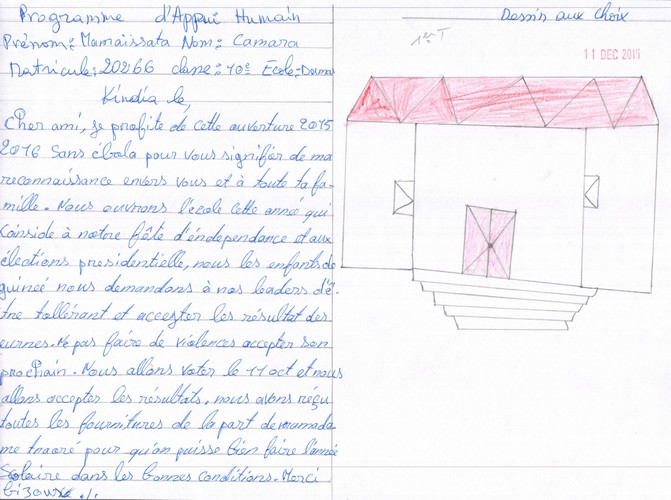 Programme d'Appui Humain
Prénom: Mamaissata Nom: Camara
Matricule: 20266 classe: 10e Ecole: Douma
Kindia le,
Cher ami, je profite de cette ouverture 2015
2016 Sans ébola pour vous signifier de ma
reconnaissance envers vous et à toute ta fa-
mille. Nous ouvrons l'école cette année qui
Coïnside à notre fête d'éndependance et aux
élections presidentielle, nous les enfants de
guineé nous demandons à nos leaders d'ê-
tre tollérant et accepter les résultat des
eurnes. Ne pas faire de violences accepter son
prochain. Nous allons voter le 11 oct et nous
allons accepter les résultats, nous avons réçu
toutes les fournitures de la part de mamada
me traoré pour qu'on puisse bien faire l'année
Scolaire dans les bonnes conditions. Merci
bizoux ./.
Dessin aux choix
1er T
11 DEC 2015